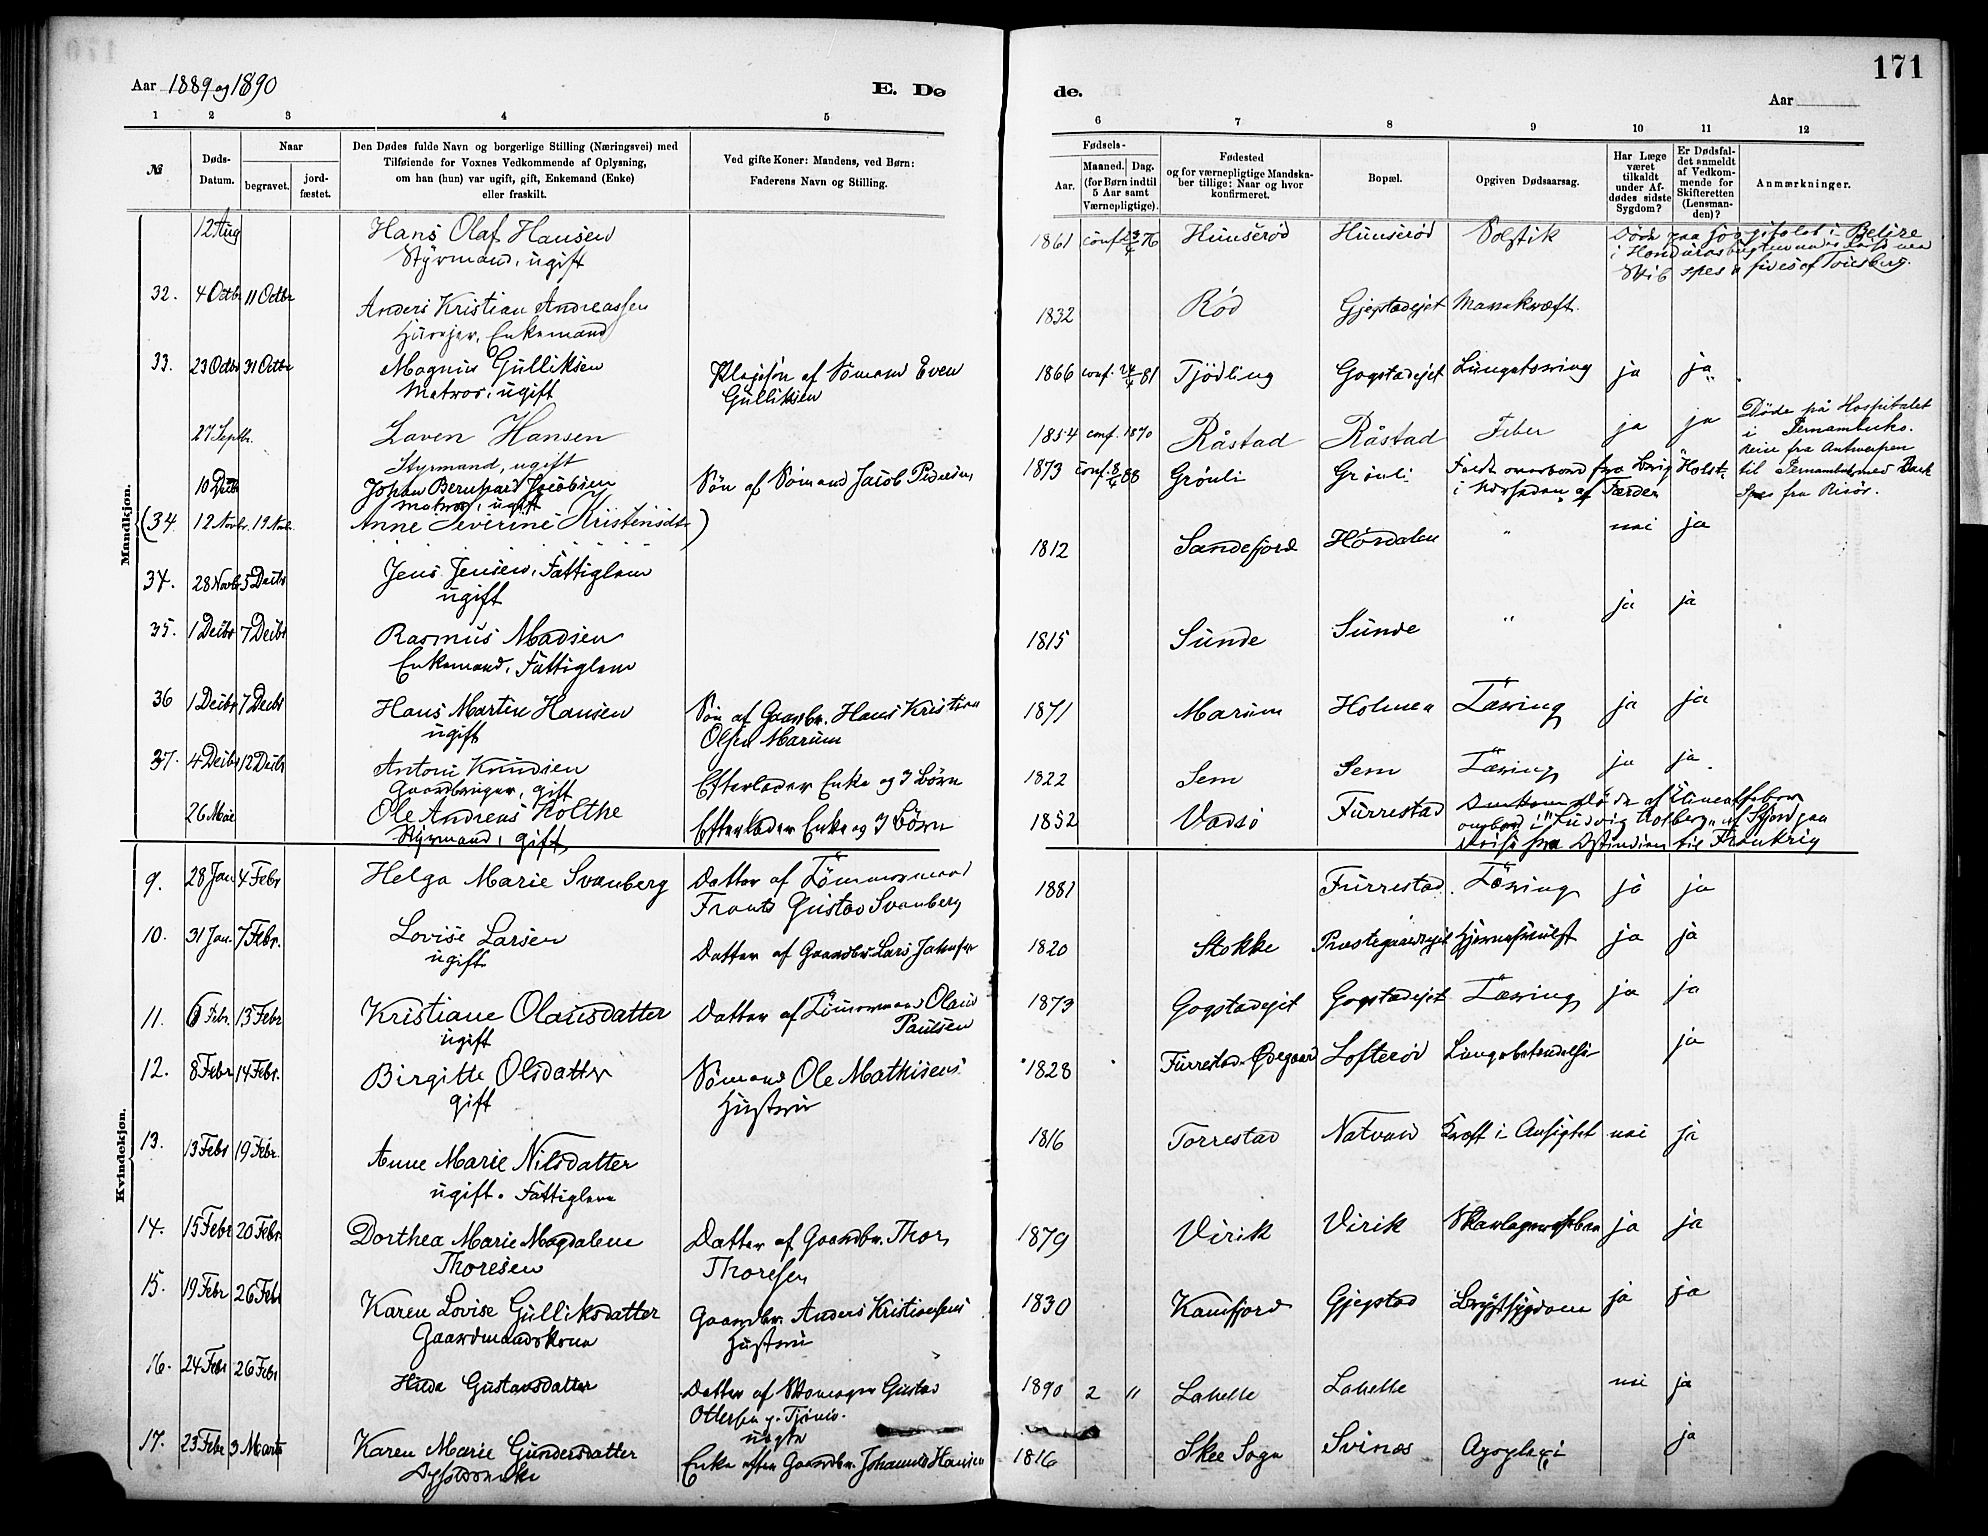 171
Aar 1889 og 1890
E. Dø
de.
Aar
1 2 3 4 5 6 7 8 9 10 11 12
№
Døds-
Datum.
Naar
begravet.
jord-
fæstet.
Den Dødes fulde Navn og borgerlige Stilling (Næringsvei) med
Tilføiende for Voxnes Vedkommende af Oplysning,
om han (hun) var ugift, gift, Enkemand (Enke)
eller fraskilt.
Ved gifte Koner: Mandens, ved Børn:
Faderens Navn og Stilling.
Fødsels-
Aar.
Maaned. Dag.
(for Børn indtil
5 Aar samt
Værnepligtige).
Fødested
og for værnepligtige Mandska-
ber tillige: Naar og hvor
konfirmeret.
Bopæl.
Opgiven Dødsaarsag.
Har Læge
været
tilkaldt
under Af-
dødes sidste
Sygdom?
Er Dødsfal-
det anmeldt
af Vedkom-
mende for
Skifteretten
(Lensman-
den)?
Anmærkninger.
Mandkjøn.
12 Aug Hans Olaf Hansen 1861 conf. 76 Hunserød Hunserød Solstik Døde paa Hospitalet i Belize
Styrmand, ugift
Skib af Tønsberg.
32. 4 Octbr 11 Octbr Anders Kristian Andreassen 1832 Rød Gjepstadejet Mavekræft
Enkemand
33. 23 Octbr 31 Octbr Magnus Gulliksen Plejesøn af Sømand Even 1866 conf. 81 Tjødling Gogstadejet Lungetæring ja ja
Matros, ugift Gulliksen
27 Septbr. Laven Hansen 1854 conf. 1870 Råstad Råstad Feber ja ja Døde på Hospitalet
Styrmand, ugift i Pernambuko.
Reise fra Antwerpen
10 Johan Bernhard Jacobsen Søn af Sømand Jacob Pedersen 1873 conf. 88 Grønli Grønli Faldt overbord fra Brig Holst til Pernambuko med Bark
Matros, ugift i Nordsøen af Færder fra Risør.
(34. 12 Novbr. 19 Novbr. Anne Severine Kristensdtr) 1812 Sandefjord Hørdalen " nei ja
34. 28 Novbr 5 Decbr Jens Jensen, Fattiglem ja ja
ugift
35. 1 Decbr 7 Decbr Rasmus Madsen 1815 Sunde Sunde "
Enkemand, Fattiglem
36 1 Decbr 7 Decbr Hans Martin Hansen Søn af Gaardbr. Hans Kristian 1871 Marum Holmen Tæring ja ja
ugift Olsen Marum
37. 4 Decbr 12 Decbr Antoni Knudsen Efterlader Enke og 3 Børn 1822 Sem Sem Tæring ja ja
Gaardbruger, gift
26 Mai Ole Andreas Holthe Efterlader Enke og 3 Børn 1852 Vadsø Furrestad Døde af Climatfeber
Styrmand, gift ombord i "Ludvig Holberg" af Skjord paa
Reise fra Ostindien til Frankrig
Kvindekjøn.
9. 28 Jan 4 Febr Helga Marie Svanberg Datter af Tømmermand 1881 Furrestad Tæring ja ja
Frants Gustav Svanberg
10. 31 Jan. 7 Febr. Lovise Larsen Datter af Gaardbr. Lars Jahnsen 1820 Stokke Præstegaardsejet Hjernesvulst ja ja
ugift
11. 6 Febr. 13 Febr Kristiane Olausdatter Datter af Tømmermand Olaus 1873 Gogstadejet Gogstadejet Tæring ja ja
ugift Paulsen
12. 8 Febr 14 Febr. Birgitte Olsdatter Sømand Ole Mathisens 1828 Furrestad-Ødegaard Lofterød Lungebetændelse ja
gift Hustru
13. 13 Febr 19 Febr. Anne Marie Nilsdatter 1816 Torrestad Natvad Kræft i Ansigtet nei ja
ugift. Fattiglem
14. 15 Febr 20 Febr. Dorthea Marie Magdalene Datter af Gaardbr. Thor 1879 Virik Virik Skarlagensfeber ja ja
Thoresen Thoresen
15. 19 Febr 26 Febr Karen Lovise Gulliksdatter Gaardbr. Anders Kristiansens 1830 Kamfjord Gjepstad Brystsygdom ja ja
Gaardmandskone Hustru
16. 24 Febr 26 Febr Hilda Gustavsdatter Datter af Skomager Gustav 1890 2 " Lahelle Lahelle nei ja
Ottersen
uægte
17. 23 Febr 3 Marts Karen Marie Gundersdatter Enke efter Gaardbr. Johannes Hansen 1816 Skee Sogn Svinæs Apoplexi ja